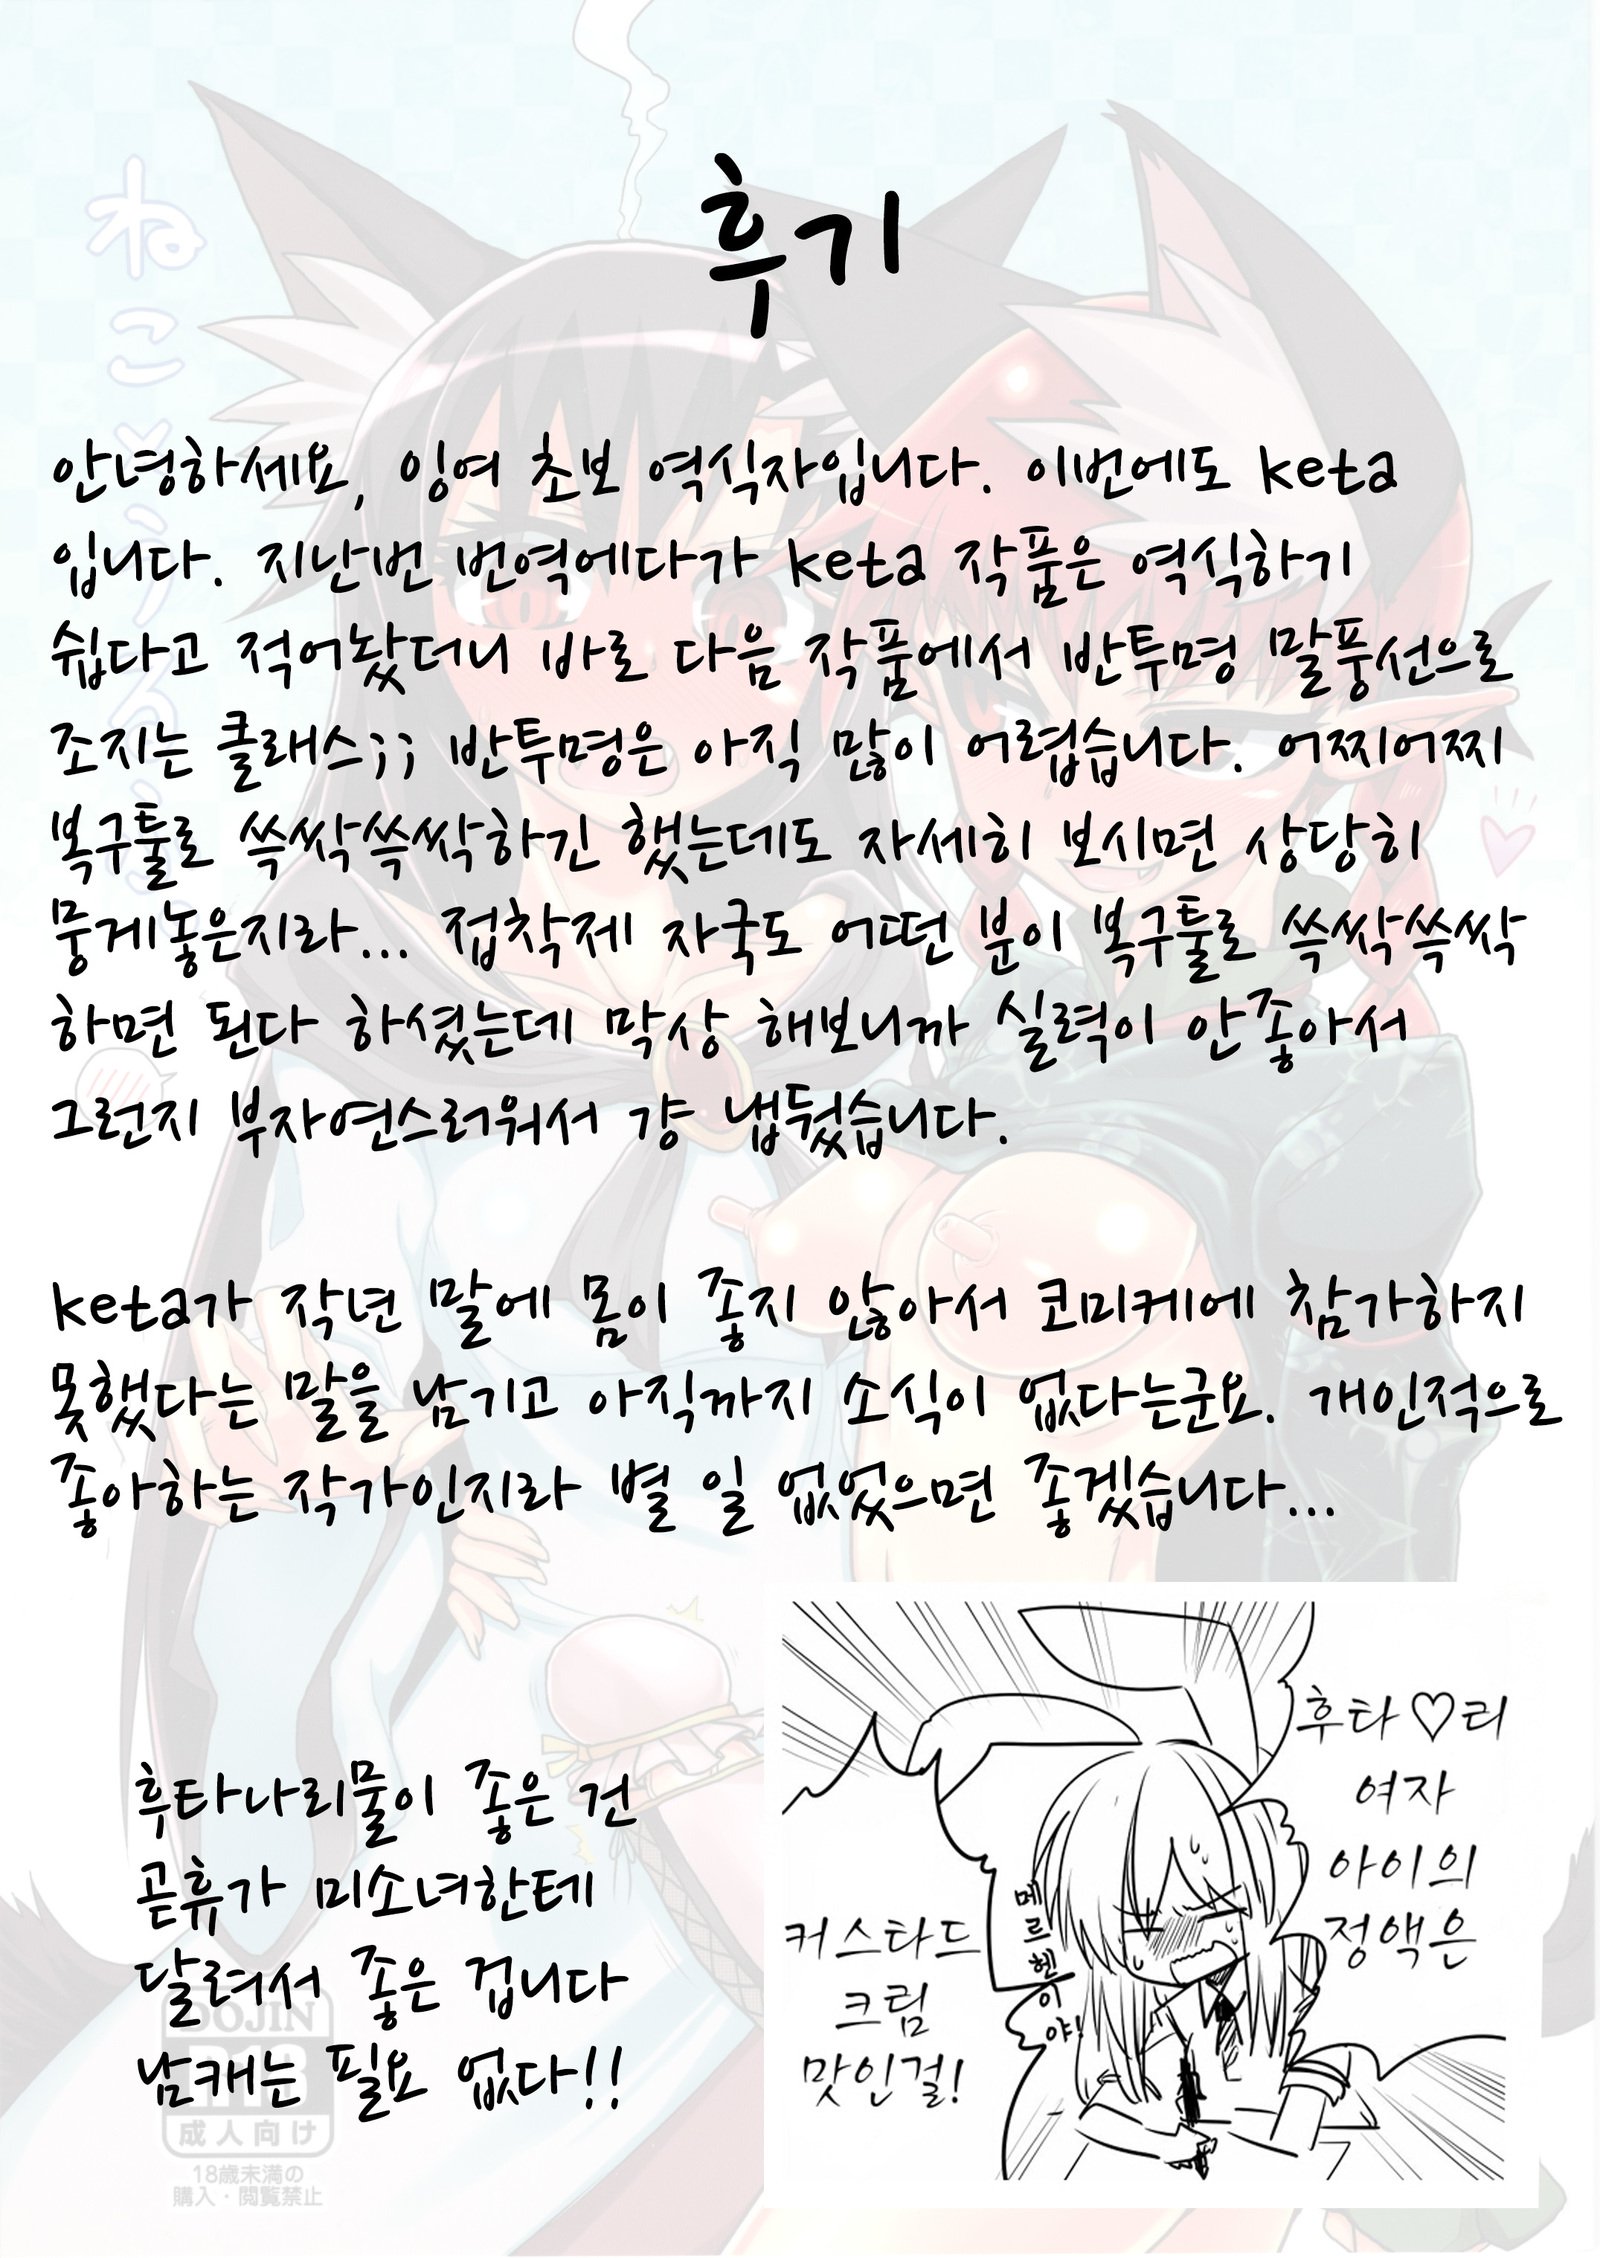 후기
안녕하세요, 잉여 초보 역식자입니다. 이번에도 keta
입니다. 지난번 번역에다가 keta 작품은 역식하기
쉽다고 적어놨더니 바로 다음 작품에서 반투명 말풍선으로
조지는 클래스;; 반투명은 아직 많이 어렵습니다. 어찌어찌
복구툴로 쓱싹쓱싹하긴 했는데도 자세히 보시면 상당히
뭉게놓은지라... 접착제 자국도 어떤 분이 복구툴로 쓱싹쓱싹
하면 된다 하셨는데 막상 해보니까 실력이 안좋아서
그런지 부자연스러워서 걍 냅뒀습니다.
keta가 작년 말에 몸이 좋지 않아서 코미케에 참가하지
못했다는 말을 남기고 아직까지 소식이 없다는군요. 개인적으로
좋아하는 작가인지라 별 일 없었으면 좋겠습니다...
후타나리물이 좋은 건
곧휴가 미소녀한테
달려서 좋은 겁니다
남캐는 필요 없다!!
후타♡리
여자
아이의
정액은
커스타드
크림
맛인걸!
메르헨이야!
ねこ
DOJIN
R18
成人向け
18歳未満の
購入・閲覧禁止